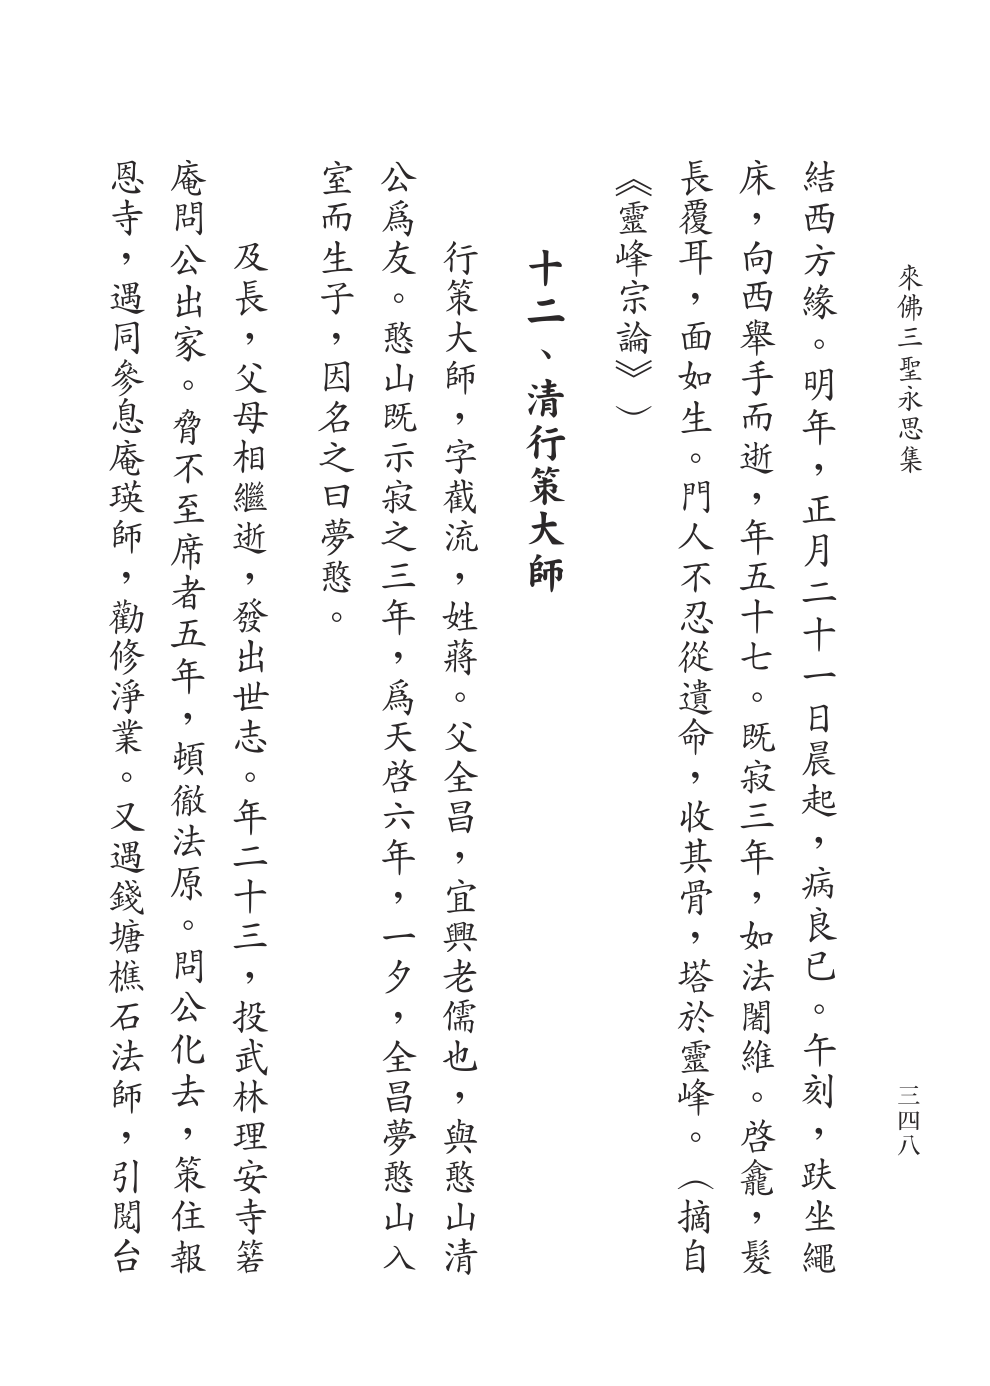 來佛三聖永思集
三四八
結西方緣。明年，正月二十一日晨起，病良已。午刻，趺坐繩
床，向西舉手而逝，年五十七。既寂三年，如法闍維。啓龕，髮
長覆耳，面如生。門人不忍從遺命，收其骨，塔於靈峰。（摘自
《靈峰宗論》）
十二、清行策大師
行策大師，字截流，姓蔣。父全昌，宜興老儒也，與憨山清
公爲友。憨山既示寂之三年，爲天啓六年，一夕，全昌夢憨山入
室而生子，因名之曰夢憨。
及長，父母相繼逝，發出世志。年二十三，投武林理安寺箬
庵問公出家。脅不至席者五年，頓徹法原。問公化去，策住報
恩寺，遇同參息庵瑛師，勸修淨業。又遇錢塘樵石法師，引閱台